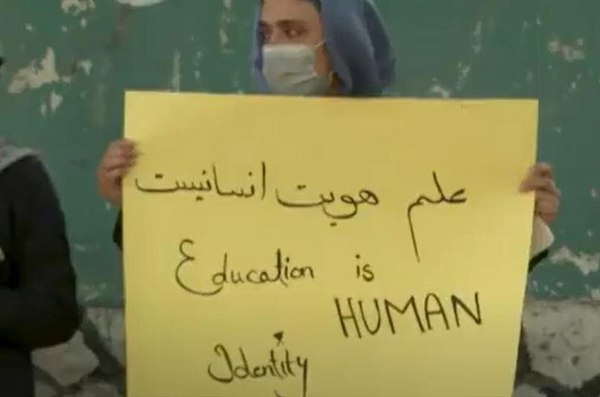 علم هویت انسانیست
Education is
HUMAN
Identity